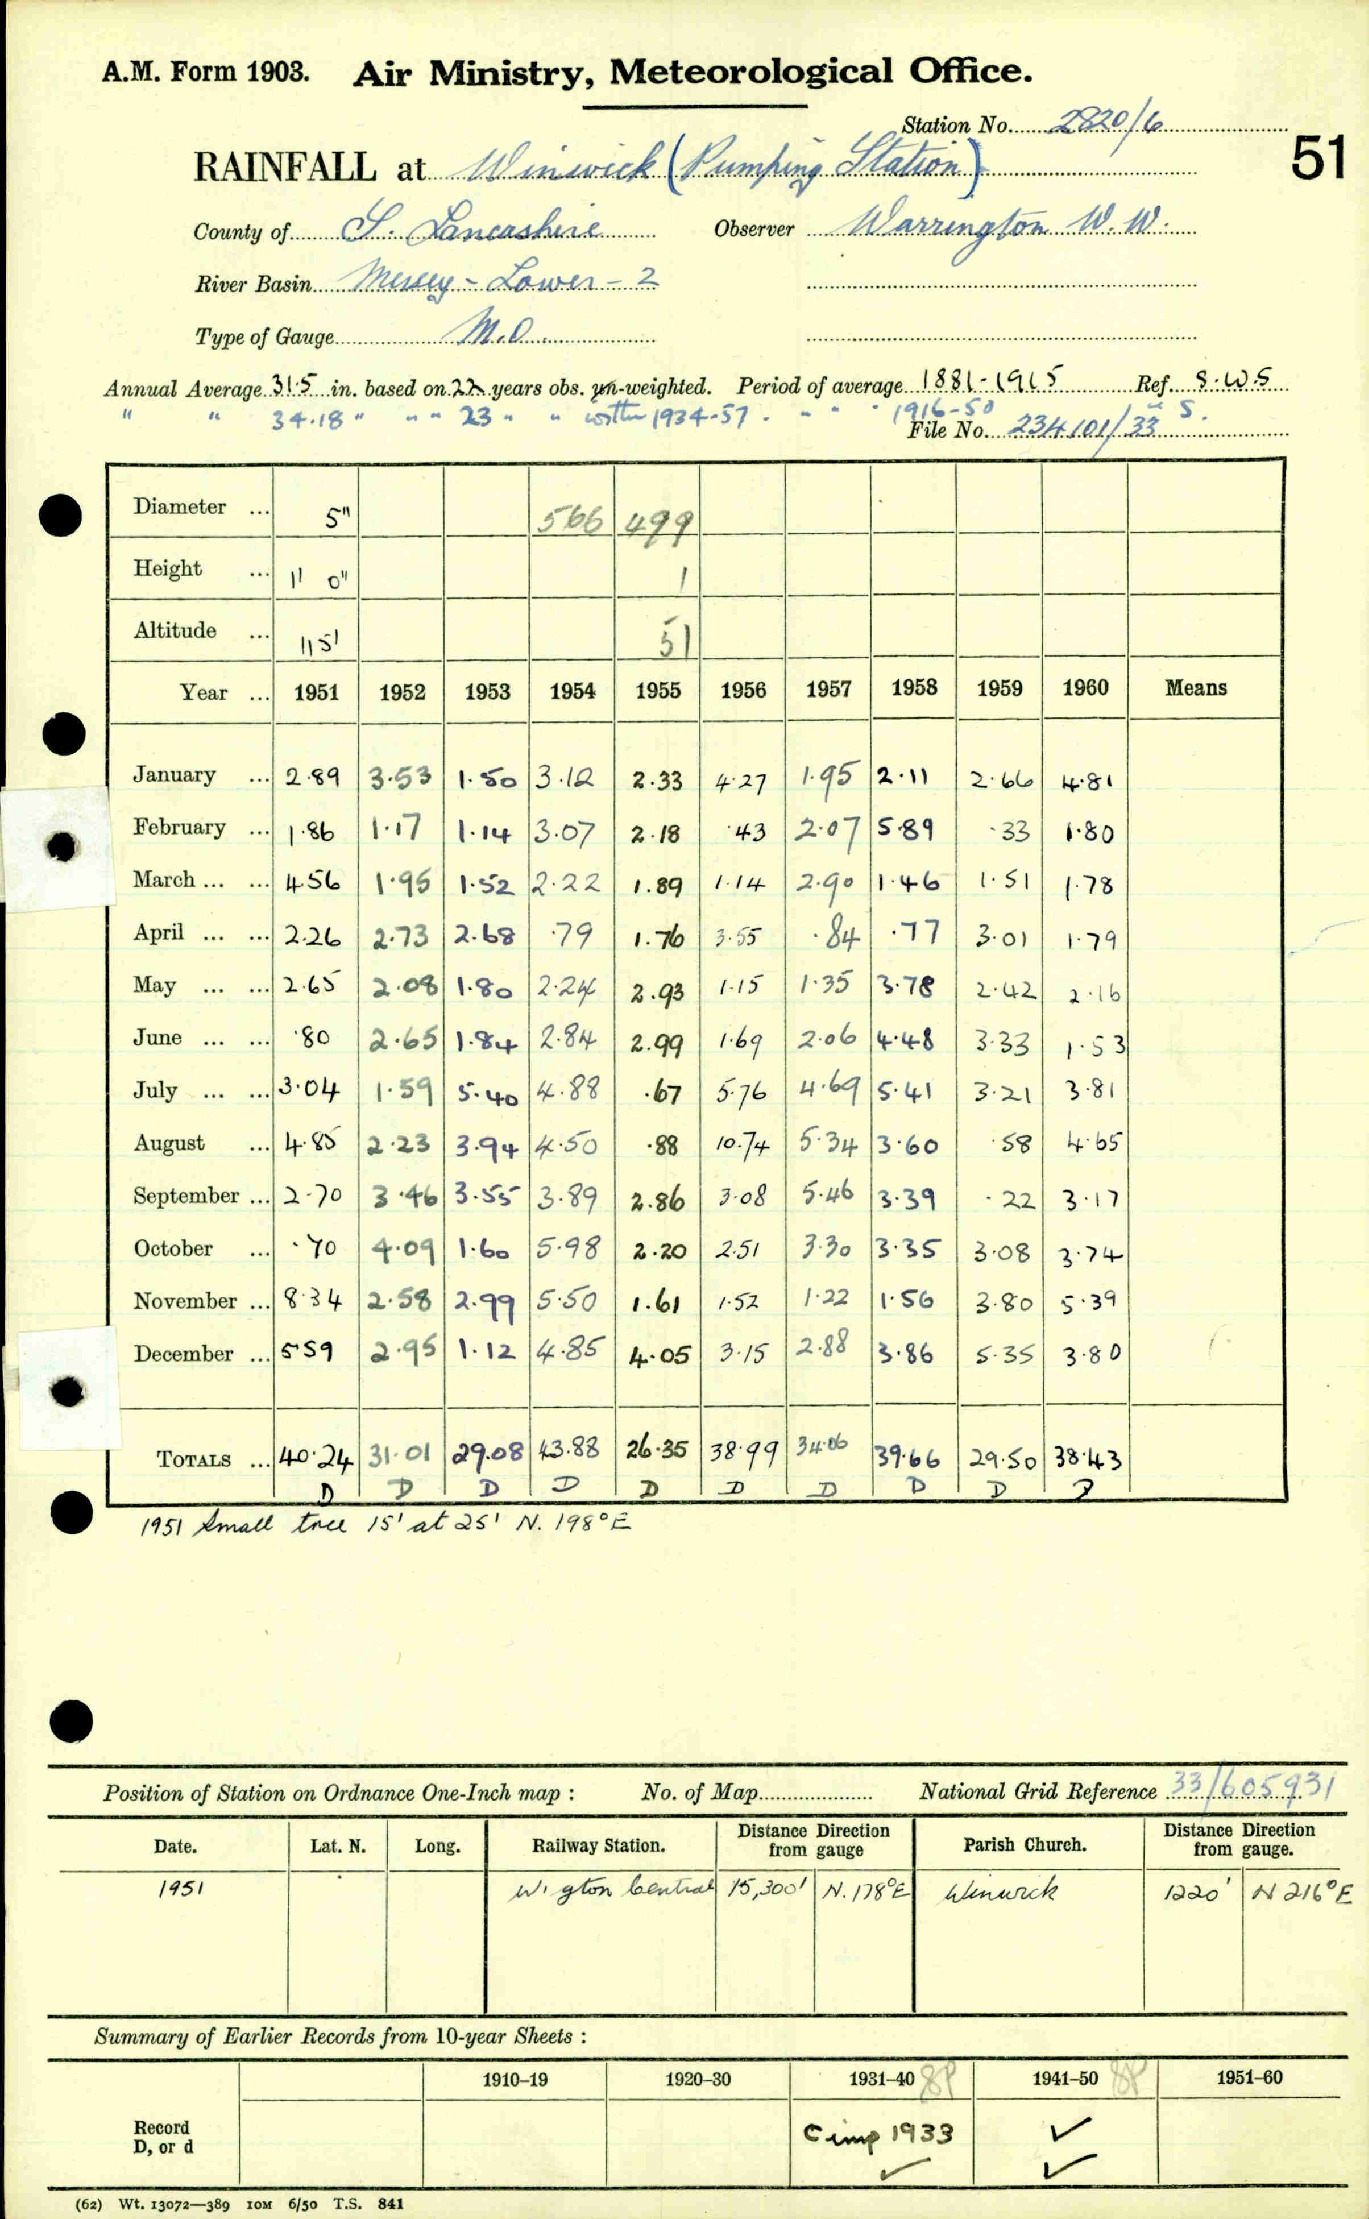 A.M. Form 1903. Air Ministry, Meteorological Office.
Station No. 2820/6
51
RAINFALL at Winwick (Pumping Station)
County of S. Lancashire Observer Warrington W.W.
River Basin Mersey - Lower - 2
Type of Gauge M.O
Annual Average 31.5 in. based on 22 years obs. un-weighted. Period of average 1881-1915 Ref. S.W.S
" " 34.18 " " " 23 " " 1934-57 . " " " 1916-50 " S.
File No. 234101/33
Diameter ... 5" 566 499
Height ... 1' 0" 1
Altitude ... 115' 51
Year ... 1951 1952 1953 1954 1955 1956 1957 1958 1959 1960 Means
January ... 2.89 3.53 1.50 3.12 2.33 4.27 1.95 2.11 2.66 4.81
February ... 1.86 1.17 1.14 3.07 2.18 .43 2.07 5.89 .33 1.80
March ... ... 4.56 1.95 1.52 2.22 1.89 1.14 2.90 1.46 1.51 1.78
April ... ... 2.26 2.73 2.68 .79 1.76 3.55 .84 .77 3.01 1.79
May ... ... 2.65 2.08 1.80 2.24 2.93 1.15 1.35 3.78 2.42 2.16
June ... ... .80 2.65 1.84 2.84 2.99 1.69 2.06 4.48 3.33 1.53
July ... ... 3.04 1.59 5.40 4.88 .67 5.76 4.69 5.41 3.21 3.81
August ... 4.85 2.23 3.94 4.50 .88 10.74 5.34 3.60 .58 4.65
September ... 2.70 3.46 3.55 3.89 2.86 3.08 5.46 3.39 .22 3.17
October ... .70 4.09 1.60 5.98 2.20 2.51 3.30 3.35 3.08 3.74
November ... 8.34 2.58 2.99 5.50 1.61 1.52 1.22 1.56 3.80 5.39
December ... 5.59 2.95 1.12 4.85 4.05 3.15 2.88 3.86 5.35 3.80
TOTALS ... 40.24 31.01 29.08 43.88 26.35 38.99 34.06 39.66 29.50 38.43
D D D D D D D D D D
1951 Small tree 15' at 25' N. 198°E
Position of Station on Ordnance One-Inch map : No. of Map National Grid Reference 33/605931
Date. Lat. N. Long. Railway Station. Distance Direction from gauge Parish Church. Distance Direction from gauge.
1951 W'gton Central 15,300' N. 178°E Winwick 1220' N 216°E
Summary of Earlier Records from 10-year Sheets :
1910–19 1920–30 1931–40 8P 1941–50 8P 1951–60
Record
D, or d
C imp 1933 ✓
✓ ✓
(62) Wt. 13072—389 10M 6/50 T.S. 841